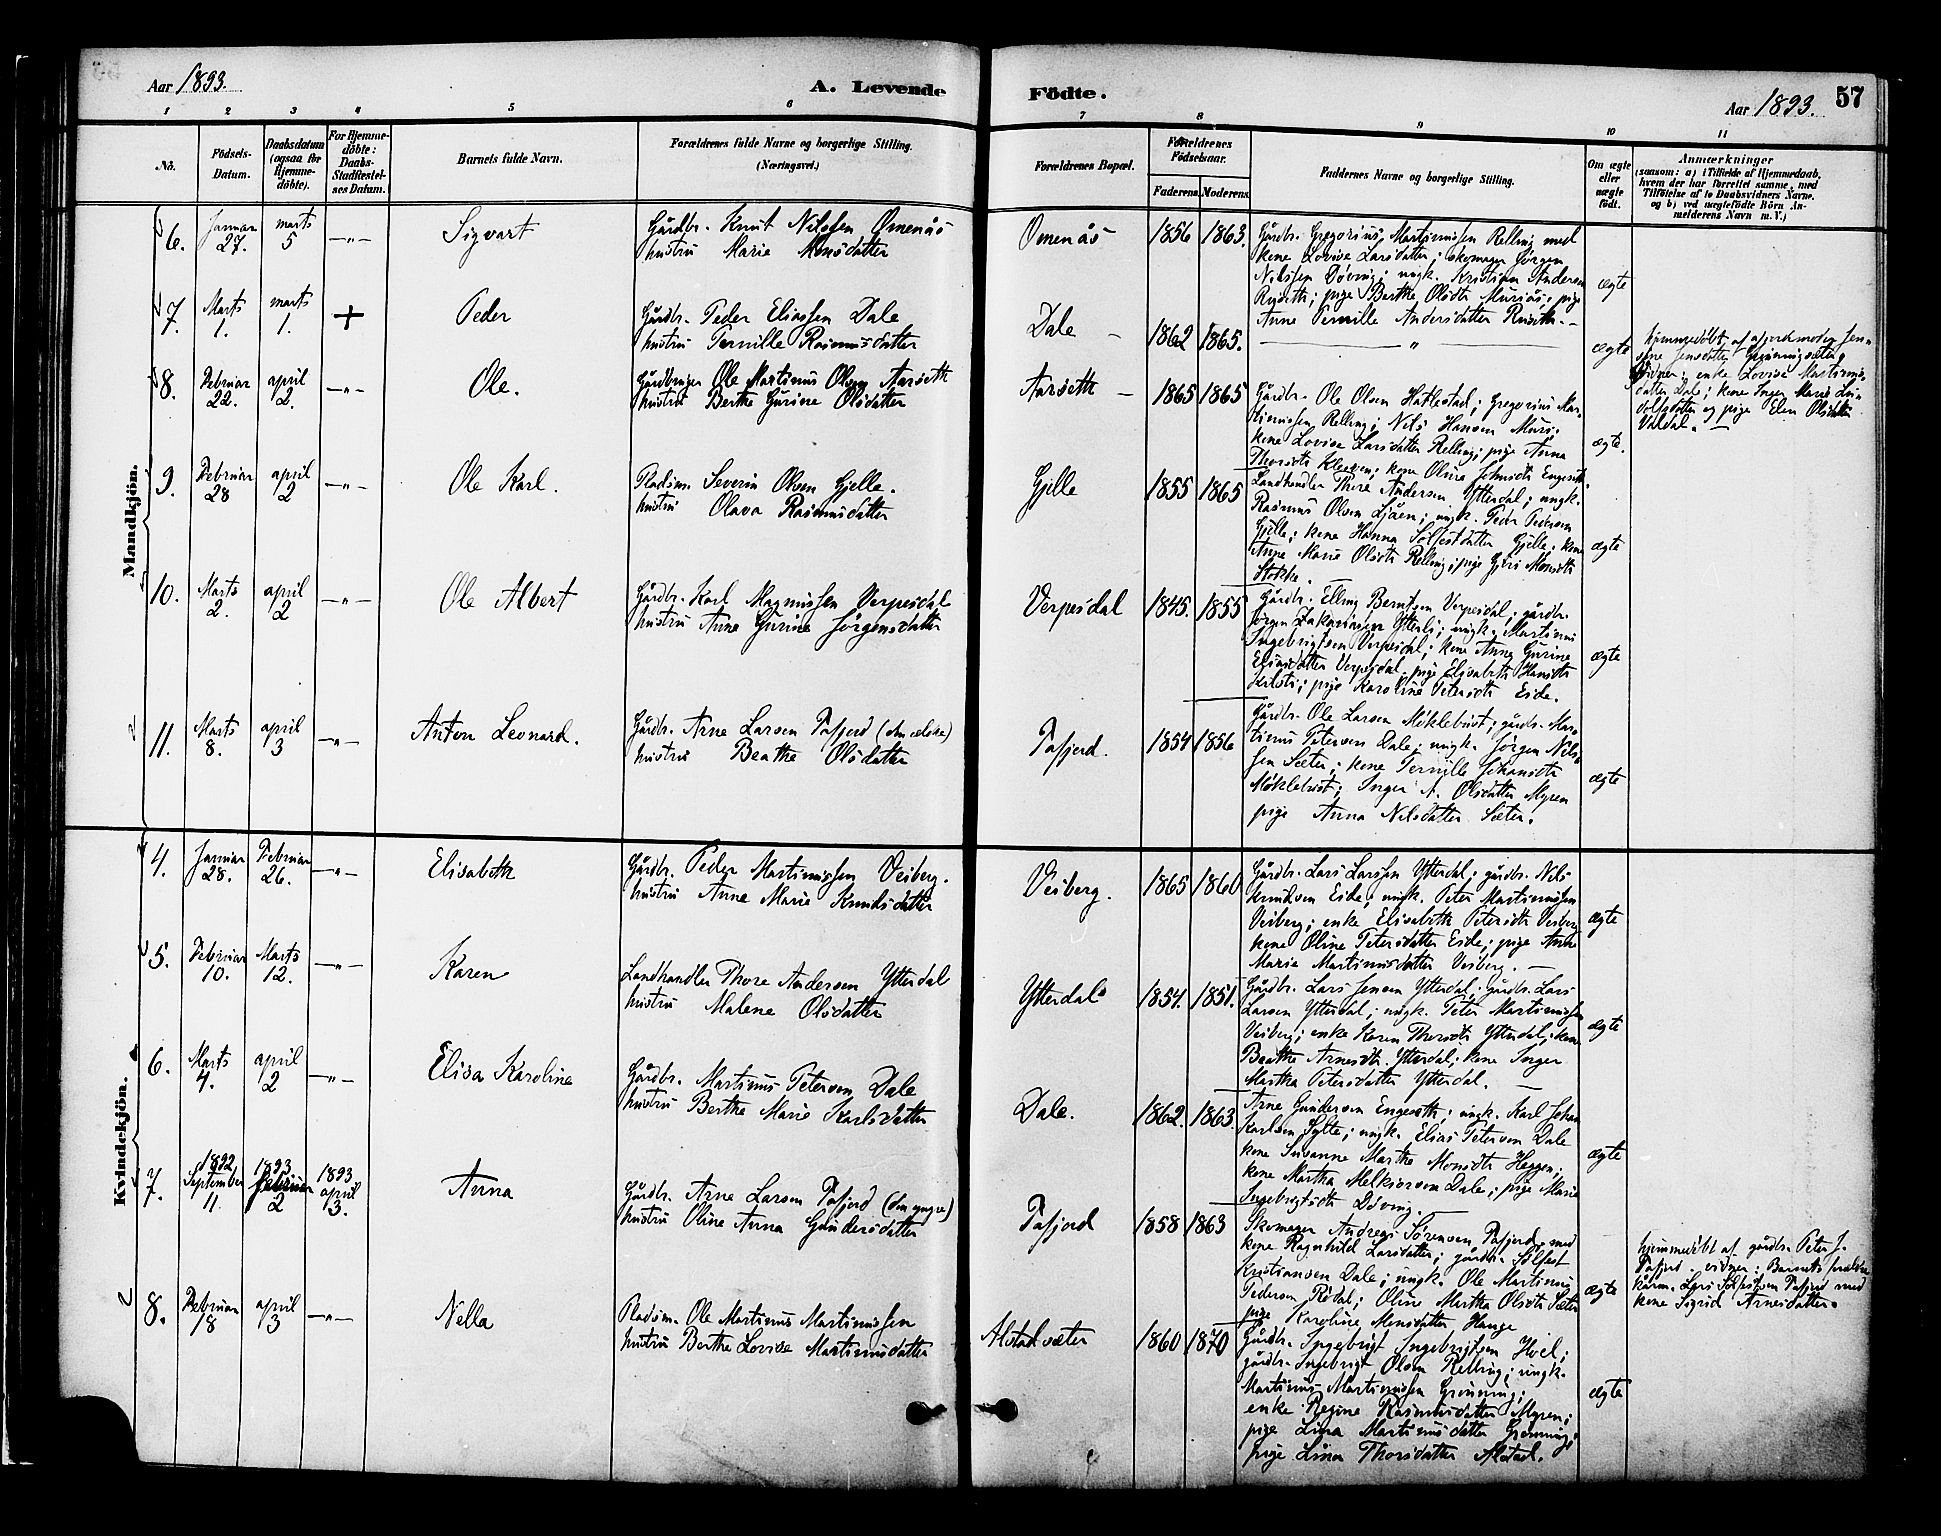 Aar 1893.
A. Levende
Födte.
Aar 1893.
57
1 2 3 4 5 6 7 8 9 10 11
No.
Födsels-
Datum.
Daabsdatum
(ogsaa for
Hjemme-
döbte).
For Hjemme-
döbte:
Daabs-
Stadfæstel-
ses Datum.
Barnets fulde Navn.
Forældrenes fulde Navne og borgerlige Stilling.
(Næringsvei.)
Forældrenes Bopæl.
Forældrenes
Födselsaar.
Faderens.
Moderens.
Faddernes Navne og borgerlige Stilling.
Om ægte
eller
uægte
födt.
Anmærkninger
(saasom: a) i Tilfælde af Hjemmedaab,
hvem der har forrettet samme, med
Tilföielse af to Daabsvidners Navne,
og b) ved uægtefödte Börn An-
melderens Navn m. V.)
Mandkjön.
6. Januar 27. marts 5 —"—
Sigvart
Gårdbr. Knut Nilssen Omenås
hustru Marie Monsdatter
Omenås 1856 1863.
Gårdbr. Gregorius Martinussen Relling med
kone Lovise Larsdatter; skomager Jörgen
Nilssen Döving; ungk. Kristian Andersen
pige Berthe Olsdtr Muriås; pige
Anne Pernille Andersdatter
ægte
7. Marts 1. marts 1. +
Peder
Gårdbr. Peder Eliassen Dale
hustru Pernille Rasmusdatter
Dale — 1862 1865.
— " —
ægte
hjemmedöbt af
Jensdatter Grönningsæter
vidner: enke Lovise Martinus-
datter Dale; kone Inger Marie
og pige Elen Olsdatter
Valdal. —
8. Februar 22. april 2. —"—
Ole.
Gårdbruger Ole Martinus Olsen Aarseth
hustru Berthe Gurine Olsdatter
Aarseth — 1865 1865
Gårdbr. Ole Olsen Hatlestad; Gregorius Mar-
tinussen Relling; Nils Hansen Muri.
kone Lovise Larsdatter Relling; pige Anna
Thorsdtr kone Oline
ægte.
9. Februar 28 april 2 —"—
Ole Karl.
Pladsm. Severin Olsen Gjelle.
hustru Olava Rasmusdatter
Gjelle 1855 1865
Landhandler Thore Andersen Ytterdal; ungk.
Rasmus Olsen Ljåen; ungk. Peder Pedersen
Gjelle; kone Hanna Sölfestdatter Gjelle; kone
Anne Marie Olsdtr Relling; pige Guri Monsdtr
Stokke.
ægte
10. Marts 2. april 2 —"—
Ole Albert
Gårdbr. Karl Magnussen Verpesdal
hustru Anne Gurine Jörgensdatter
Verpesdal 1845. 1855
Gårdbr. Elling Berntsen Verpesdal; gårdbr.
Jörgen Zakariassen Ytterli; ungk. Martinus
Ingebrigtsen Verpesdal; kone Anne Gurine
Eliasdatter Verpesdal, pige Elisabeth Hansdtr
pige Karoline Petersdtr Eide.
ægte
11. Marts 8. april 3 —"—
Anton Leonard.
Gårdbr. Arne Larsen Tafjord (den ældre)
hustru Beathe Olsdatter
Tafjord. 1854 1856
Gårdbr. Ole Larsen Möklebust; gårdbr. Mar-
tinus Petersen Dale; ungk. Jörgen Nils-
sen Sæter; kone Pernille Johansdtr
Möklebust; Inger A. Olsdatter Myren
pige Anna Nilsdatter Sæter.
ægte
Kvindekjön.
4. Januar 28. Februar 26. —"—
Elisabeth
Gårdbr. Peder Martinussen Veiberg.
hustru Anne Marie Knudsdatter
Veiberg. 1865 1860
Gårdbr. Lars Larssen Ytterdal; gårdbr. Nils
Knudsen Eide; ungk. Peter Martinussen
Veiberg; enke Elisabeth Petersdtr Veiberg
kone Oline Petersdatter Eide; pige Anne
Marie Martinusdatter Veiberg. —
ægte
5. Februar 10. Marts 12. —"—
Karen
Landhandler Thore Andersen Ytterdal
hustru Malene Olsdatter
Ytterdal 1854. 1851.
Gårdbr. Lars Jensen Ytterdal; gårdbr. Lars
Larsen Ytterdal; ungk. Peter Martinussen
Veiberg; enke Karen Thorsdtr Ytterdal; kone
Beathe Arnesdtr. Ytterdal; kone Inger
Martha Petersdatter Ytterdal.
ægte
6. Marts 4. april 2 —"—
Elisa Karoline
Gårdbr. Martinus Petersen Dale
hustru Berthe Marie Karlsdatter
Dale. 1862. 1863.
Arne Gundersen Engeseth; ungk. Karl Johan
Karlsen Sylte; ungk. Elias Petersen Dale
kone Susanne Marthe Monsdtr Heggen;
kone Martha Melkiorsen Dale; pige Marie
Ingebrigtsdtr Döving.
ægte
7. 1892 September 11. 1893 Februar 2 1893 april 3.
Anna
Gårdbr. Arne Larsen Tafjord (den yngre)
hustru Oline Anna Gundersdatter
Tafjord 1858 1863
Skomager Andreas Sörensen Tafjord med
kone Ragnhild Larsdatter; gårdbr. Sölfest
Kristiansen Dale; ungk. Ole Martinus
Pedersen Rödal; Oline Martha Olsdtr Sæter
pige Karoline Monsdatter Hauge
ægte
hjemmedöbt af gårdbr. Peter J.
Tafjord. vidner: Barnets
kårm. Lars Sölfestsen Tafjord med
kone Sigrid Arnesdatter.
8. Februar 18 april 3 —"—
Nella
Pladsm. Ole Martinus Martinussen
hustru Berthe Lovise Martinusdatter
Alstadsæter 1860 1870
Gårdbr. Ingebrigt Ingebrigtsen Hoel;
gårdbr. Ingebrigt Olsen Relling; ungk.
Martinus Martinussen Grönning;
enke Regine Rasmusdatter Myren;
pige Lina Martinusdatter Grönning;
pige Lina Thorsdatter Alstad.
ægte